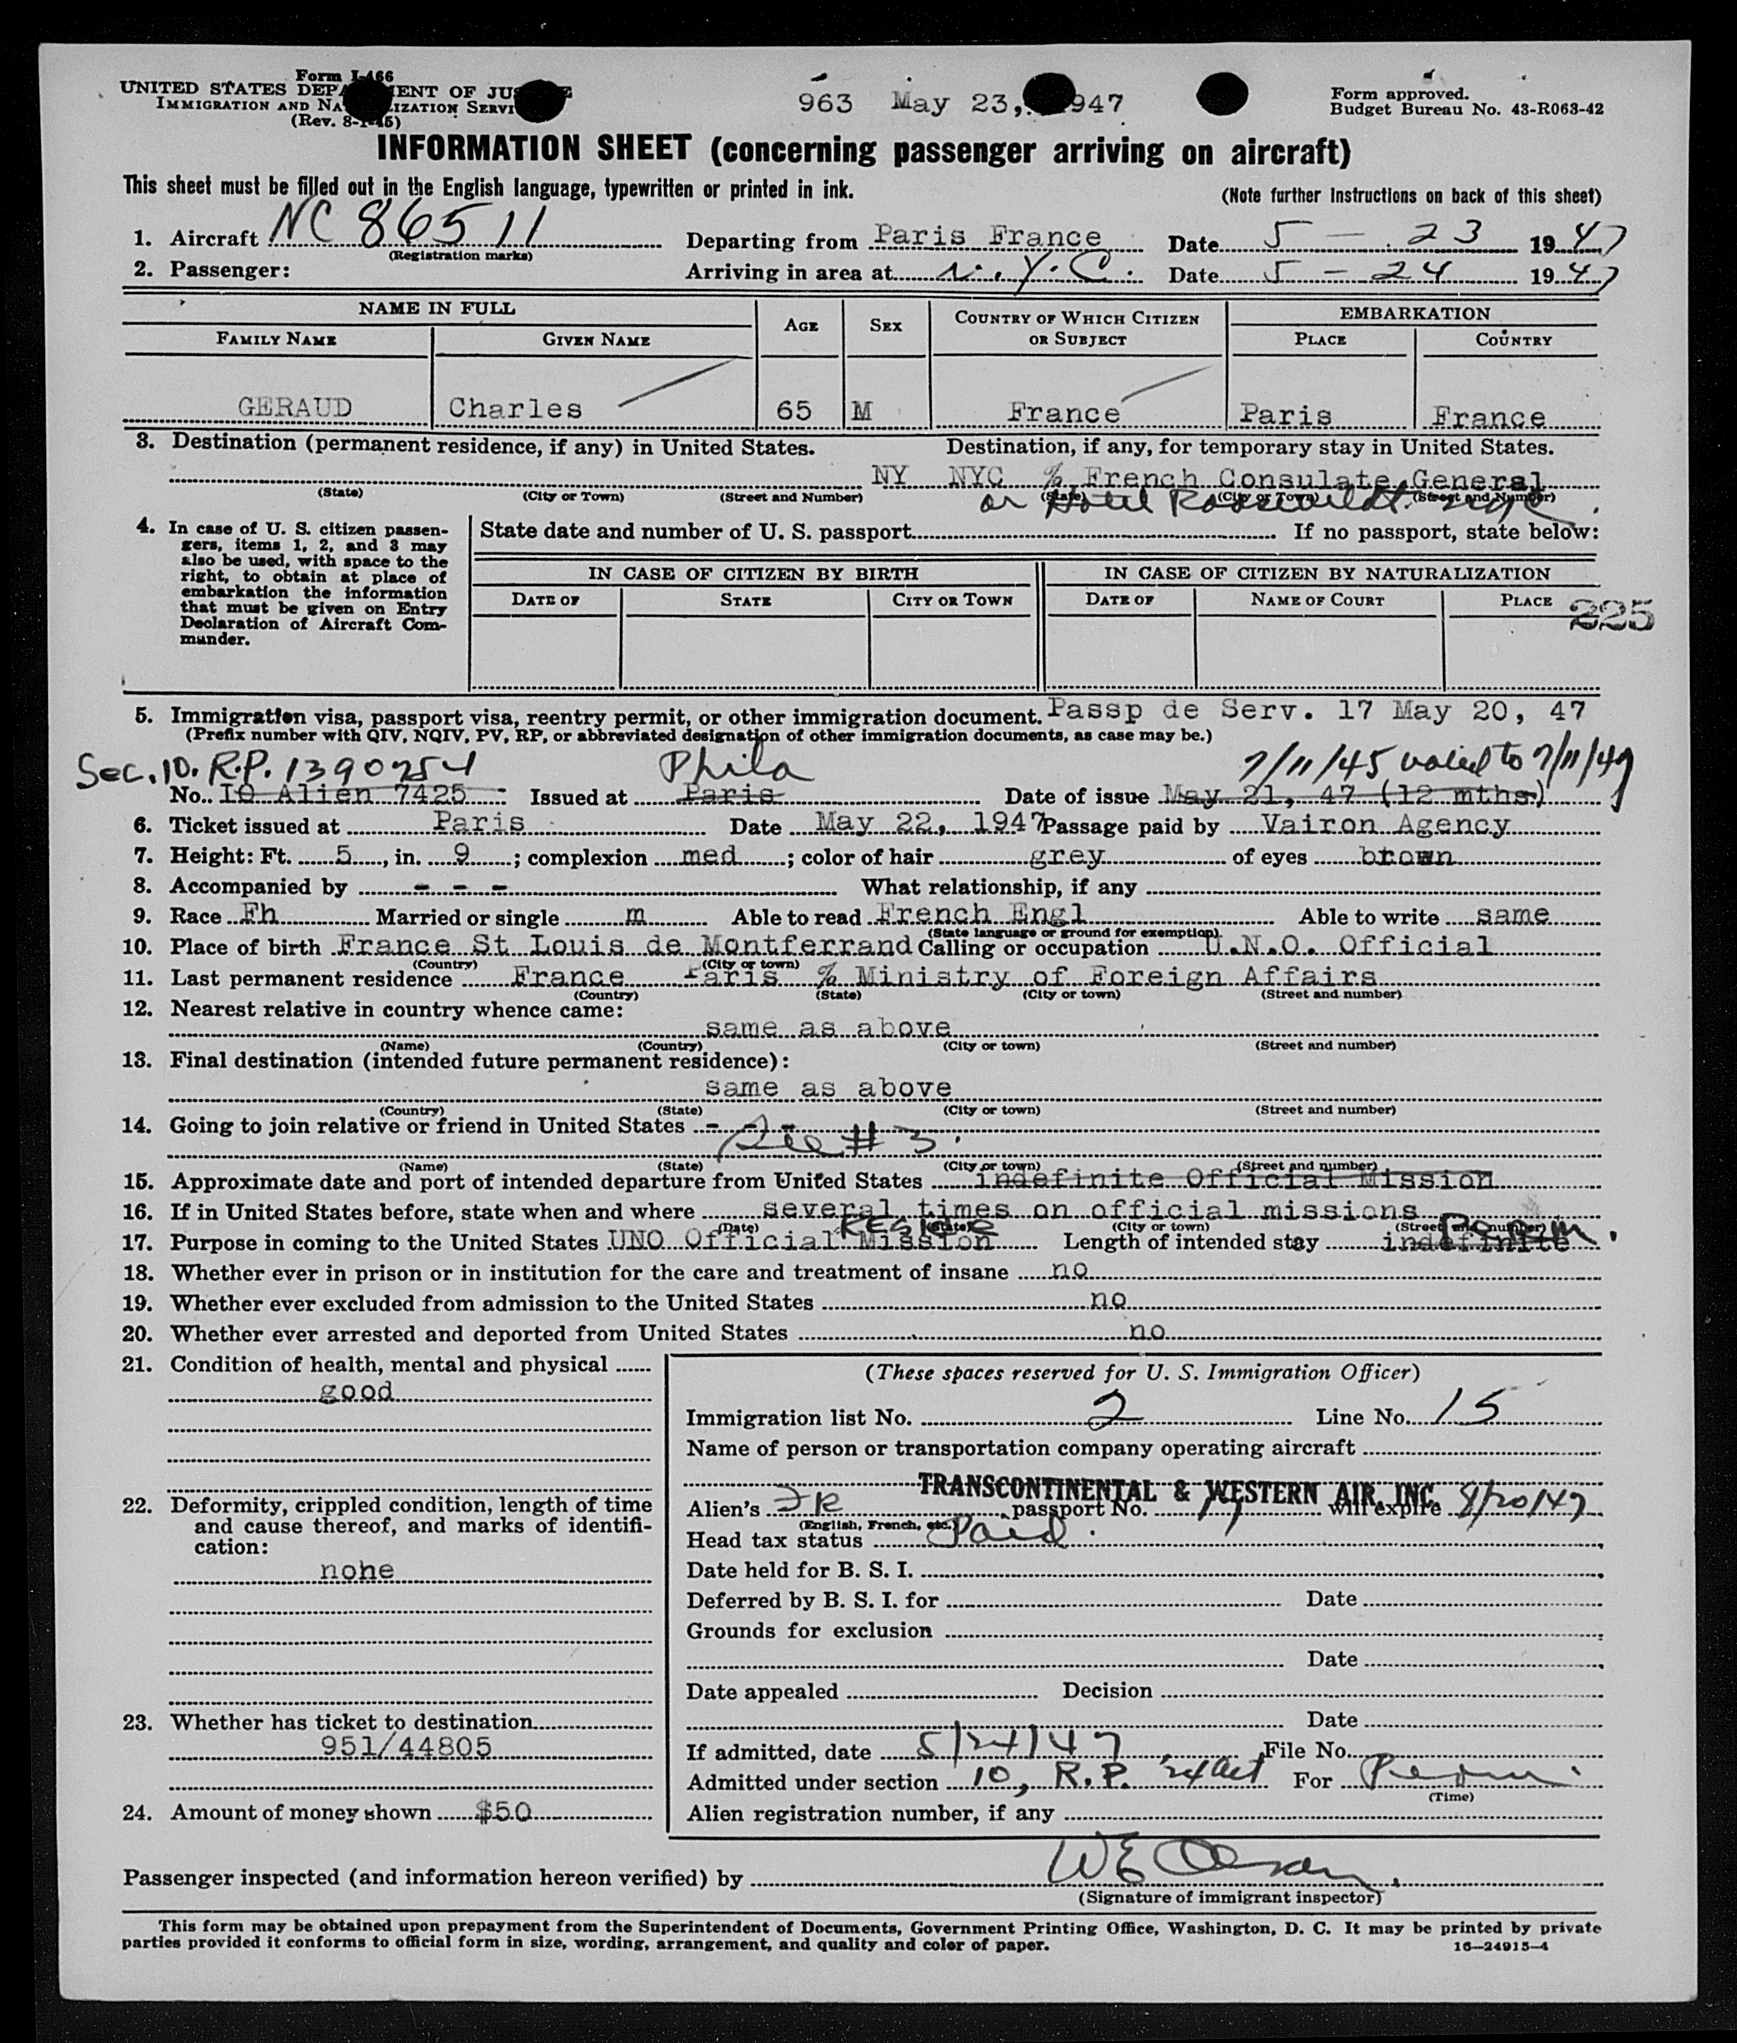 Form I-466
UNITED STATES DEPA ENT OF JUS E
IMMIGRATION AND NA IZATION SERVI
(Rev. 8-1-45)
963 May 23, 1947
Form approved.
Budget Bureau No. 43-R063-42
INFORMATION SHEET (concerning passenger arriving on aircraft)
This sheet must be filled out in the English language, typewritten or printed in ink.
(Note further instructions on back of this sheet)
1. Aircraft NC 86511 Departing from Paris France Date 5 - 23 1947
(Registration marks)
2. Passenger: Arriving in area at N.Y.C. Date 5 - 24 1947
NAME IN FULL AGE SEX COUNTRY OF WHICH CITIZEN OR SUBJECT EMBARKATION
FAMILY NAME GIVEN NAME PLACE COUNTRY
GERAUD Charles 65 M France Paris France
3. Destination (permanent residence, if any) in United States. Destination, if any, for temporary stay in United States.
NY NYC % French Consulate General
(State) (City or Town) (Street and Number) (State) (City or Town) (Street and Number)
or Hotel Roosevelt NYC
4. In case of U. S. citizen passen-
gers, items 1, 2, and 3 may
also be used, with space to the
right, to obtain at place of
embarkation the information
that must be given on Entry
Declaration of Aircraft Com-
mander.
State date and number of U. S. passport If no passport, state below:
IN CASE OF CITIZEN BY BIRTH IN CASE OF CITIZEN BY NATURALIZATION
DATE OF STATE CITY OR TOWN DATE OF NAME OF COURT PLACE
225
5. Immigration visa, passport visa, reentry permit, or other immigration document. Passp de Serv. 17 May 20, 47
(Prefix number with QIV, NQIV, PV, RP, or abbreviated designation of other immigration documents, as case may be.)
Sec. 10. R.P. 1390254 Phila 7/11/45 valid to 7/11/47
No. IO Alien 7425 Issued at Paris Date of issue May 21, 47 (12 mths)
6. Ticket issued at Paris Date May 22, 1947 Passage paid by Vairon Agency
7. Height: Ft. 5, in. 9; complexion med; color of hair grey of eyes brown
8. Accompanied by - - - What relationship, if any
9. Race Fh Married or single m Able to read French Engl Able to write same
(State language or ground for exemption)
10. Place of birth France St Louis de Montferrand Calling or occupation U.N.O. Official
(Country) (City or town)
11. Last permanent residence France Paris % Ministry of Foreign Affairs
(Country) (State) (City or town) (Street and number)
12. Nearest relative in country whence came:
same as above
(Name) (Country) (City or town) (Street and number)
13. Final destination (intended future permanent residence):
same as above
(Country) (State) (City or town) (Street and number)
14. Going to join relative or friend in United States - - -
See # 3.
(Name) (State) (City or town) (Street and number)
15. Approximate date and port of intended departure from United States indefinite Official Mission
16. If in United States before, state when and where several times on official missions
(Date) (State) (City or town) (Street and number)
RESIDE Perm.
17. Purpose in coming to the United States UNO Official Mission Length of intended stay indefinite
18. Whether ever in prison or in institution for the care and treatment of insane no
19. Whether ever excluded from admission to the United States no
20. Whether ever arrested and deported from United States no
21. Condition of health, mental and physical
good
22. Deformity, crippled condition, length of time
and cause thereof, and marks of identifi-
cation:
nohe
23. Whether has ticket to destination
951/44805
24. Amount of money shown $50
(These spaces reserved for U. S. Immigration Officer)
Immigration list No. 2 Line No. 15
Name of person or transportation company operating aircraft
TRANSCONTINENTAL & WESTERN AIR, INC.
Alien's FR passport No. 17 will expire 8/20/47
(English, French, etc.)
Head tax status Paid
Date held for B. S. I.
Deferred by B. S. I. for Date
Grounds for exclusion
Date
Date appealed Decision
Date
If admitted, date 5/24/47 File No.
Admitted under section 10, R.P. 24 Act For Perm.
(Time)
Alien registration number, if any
Passenger inspected (and information hereon verified) by
(Signature of immigrant inspector)
This form may be obtained upon prepayment from the Superintendent of Documents, Government Printing Office, Washington, D. C. It may be printed by private
parties provided it conforms to official form in size, wording, arrangement, and quality and color of paper. 16—24915-4